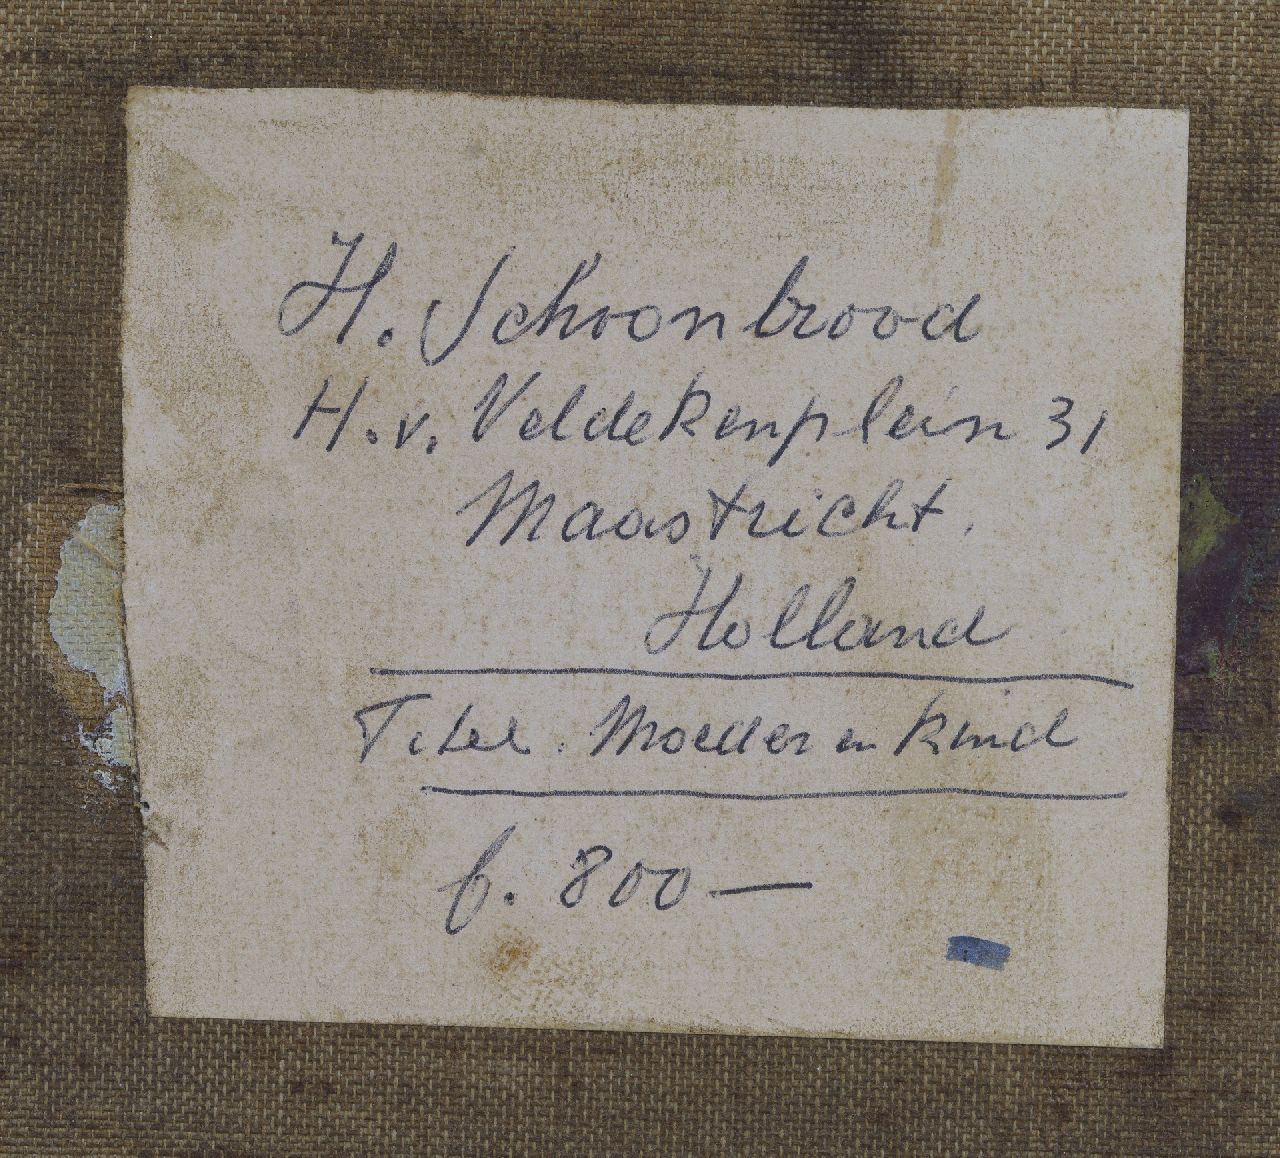 H. Schoonbrood
H. v. Veldekenplein 31
Maastricht.
Holland
Titel. Moeder en Kind
f. 800 —